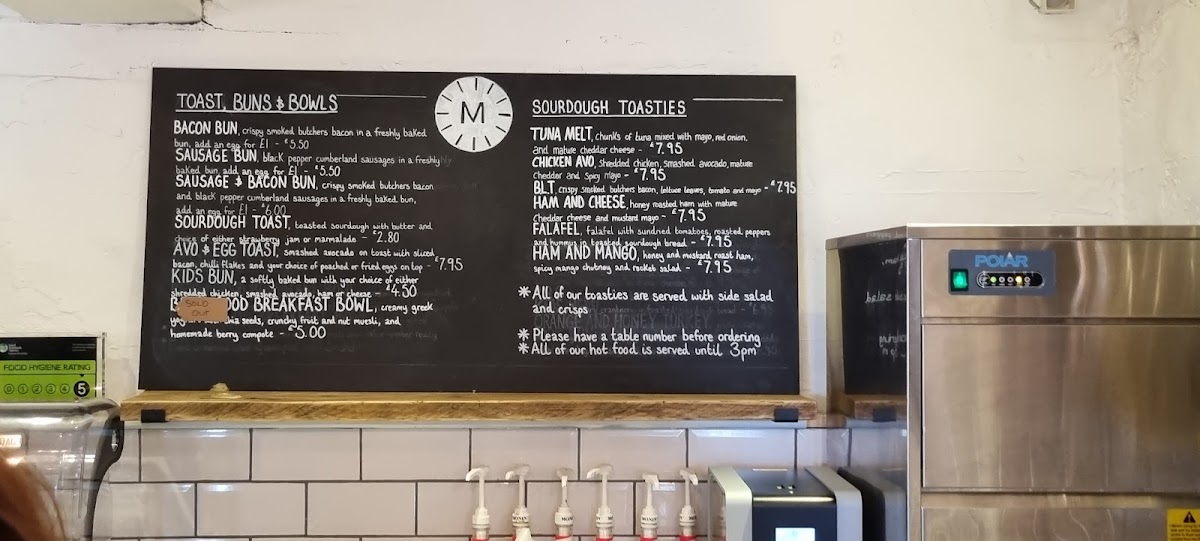 TOAST, BUNS & BOWLS
BACON BUN, crispy smoked butchers bacon in a freshly baked
bun, add an egg for £1 - £5.50
SAUSAGE BUN, black pepper cumberland sausages in a freshly
baked bun, add an egg for £1 - £5.50
SAUSAGE & BACON BUN, crispy smoked butchers bacon
and black pepper cumberland sausages in a freshly baked bun,
add an egg for £1 - £6.00
SOURDOUGH TOAST, toasted sourdough with butter and
choice of either strawberry jam or marmalade - £2.80
AVO & EGG TOAST, smashed avocado on toast with sliced
bacon, chilli flakes and your choice of poached or fried eggs on top - £7.95
KIDS BUN, a softly baked bun with your choice of either
shredded chicken, smashed avocado, ham or cheese - £4.50
SOLD OUT
BREAKFAST BOWL, creamy greek
seeds, crunchy fruit and nut muesli, and
homemade berry compote - £5.00
M
SOURDOUGH TOASTIES
TUNA MELT, chunks of tuna mixed with mayo, red onion,
and mature cheddar cheese - £7.95
CHICKEN AVO, shredded chicken, smashed avocado, mature
Chedder and spicy mayo - £7.95
BLT, crispy smoked butchers bacon, lettuce leaves, tomato and mayo - £7.95
HAM AND CHEESE, honey roasted ham with mature
Cheddar cheese and mustard mayo - £7.95
FALAFEL, falafel with sundried tomatoes, roasted peppers
and hummus in toasted sourdough bread - £7.95
HAM AND MANGO, honey and mustard roast ham,
spicy mango chutney and rocket salad - £7.95
* All of our toasties are served with side salad
and crisps
* Please have a table number before ordering
* All of our hot food is served until 3pm
FOOD HYGIENE RATING
0 1 2 3 4 5
POLAR
MONIN